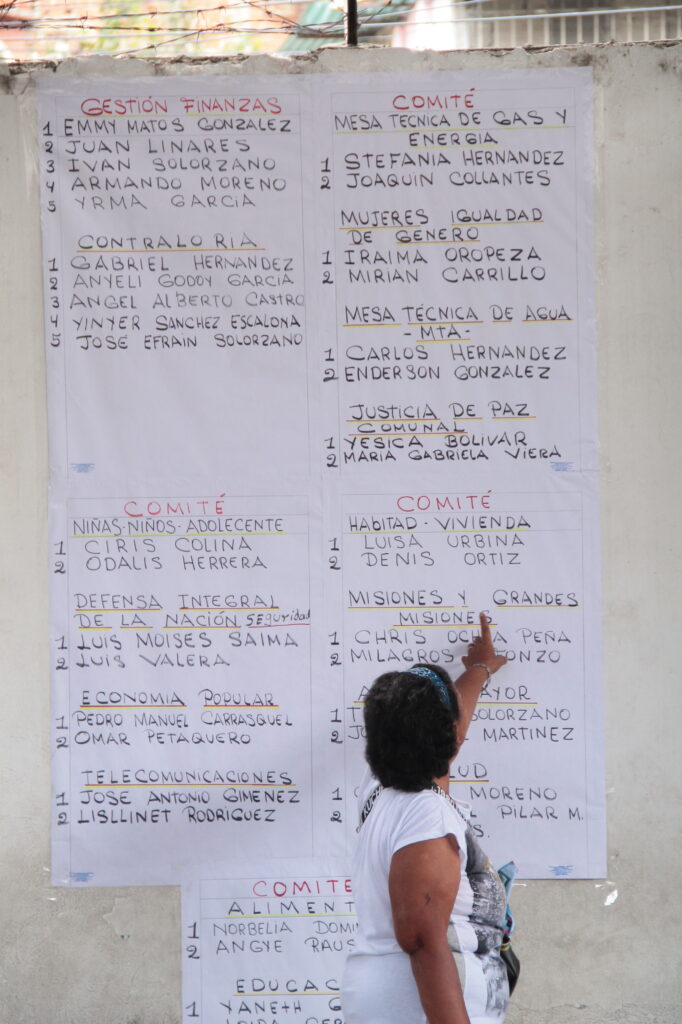 GESTIÓN FINANZAS
1 EMMY MATOS GONZALEZ
2 JUAN LINARES
3 IVAN SOLORZANO
4 ARMANDO MORENO
5 YRMA GARCIA
CONTRALORIA
1 GABRIEL HERNANDEZ
2 ANYELI GODOY GARCIA
3 ANGEL ALBERTO CASTRO
4 YINYER SANCHEZ ESCALONA
5 JOSÉ EFRAIN SOLORZANO
COMITÉ
MESA TECNICA DE GAS Y
ENERGIA
1 STEFANIA HERNANDEZ
2 JOAQUIN COLLANTES
MUJERES IGUALDAD
DE GENERO
1 IRAIMA OROPEZA
2 MIRIAN CARRILLO
MESA TÉCNICA DE AGUA
- MTA -
1 CARLOS HERNANDEZ
2 ENDERSON GONZALEZ
JUSTICIA DE PAZ
COMUNAL
1 YESICA BOLIVAR
2 MARIA GABRIELA VIERA
COMITÉ
NIÑAS-NIÑOS-ADOLECENTE
1 CIRIS COLINA
2 ODALIS HERRERA
DEFENSA INTEGRAL
DE LA NACIÓN SEguridad
1 LUIS MOISES SAIMA
2 LUIS VALERA
ECONOMIA POPULAR
1 PEDRO MANUEL CARRASQUEL
2 OMAR PETAQUERO
TELECOMUNICACIONES
1 JOSE ANTONIO GIMENEZ
2 LISLLINET RODRIGUEZ
COMITÉ
HABITAD - VIVIENDA
1 LUISA URBINA
2 DENIS ORTIZ
MISIONES Y GRANDES
MISIONES
1 CHRIS OCHOA PEÑA
2 MILAGROS
1 SOLORZANO
2 MARTINEZ
1 MORENO
2 PILAR M.
COMITE
1 NORBELIA
2 ANGYE
1 YANETH